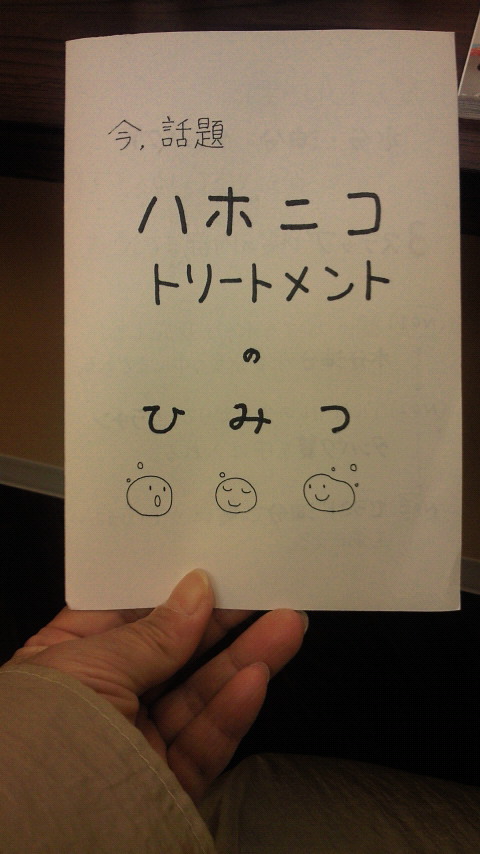 今,話題
ハホニコ
トリートメント
の
ひみつ